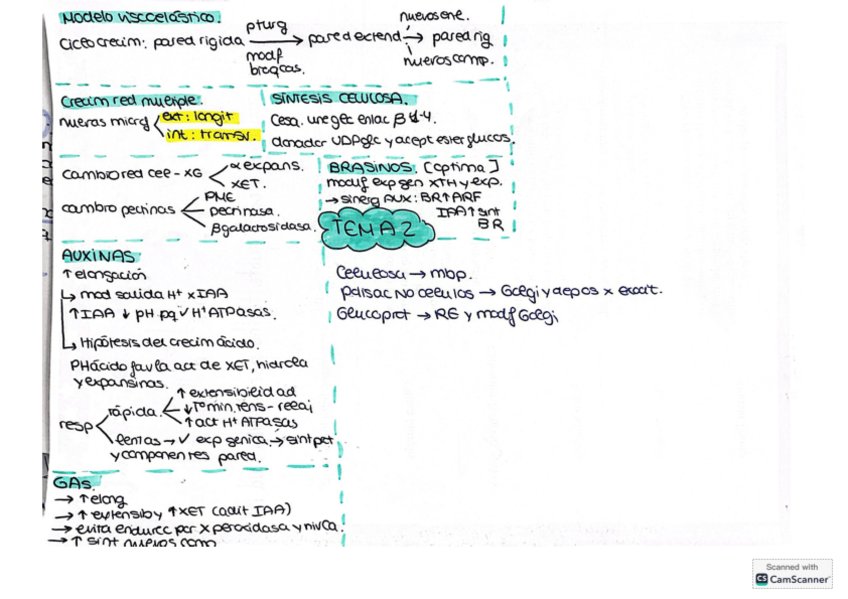 Modelo viscoelástico.
ciclo crecim: pared rigida → pared extend → pared rig
pturg
modf
breqcas.
nuevos ene.
nuevos comp.
Crecim red multiple.
nueras microf
ext: longit
int: transv.
SÍNTESIS CELULOSA.
Cesa. une glc enlac β 1-4.
donador UDPglc y acept ester glucos.
cambio red cel - XG
α expans.
XET.
cambio pectinas
PME
pectinasa.
βgalactosidasa.
BRASINOS. [optima]
modif exp gen XTH y exp.
→ sinerg AUX: BR↑ARF
IAA↑sint
BR
TEMA 2
AUXINAS
↑ elongación
↳ mod salida H⁺ x IAA
↑IAA ↓ pH pq √ H⁺ATPasas.
↳ Hipótesis del crecim ácido.
PHácido fav la act de XET, hidrola
y expansinas.
resp
rápida.
↑ extensibilidad
↓Tº min. tens - relaj
↑ act H⁺ ATPasas
lentas → √ exp genica → sint pct
y componentes pared.
Celulosa → mbp.
Polisac No celulos → Golgi y depos x exocit.
Glucoprot → RE y modf Golgi
GAs.
→ ↑ elong
→ ↑ extensib y ↑XET (adit IAA)
→ evita endurec par x peroxidasa y nivCa.
→ ↑ sint nuevos comp
Scanned with
CS CamScanner